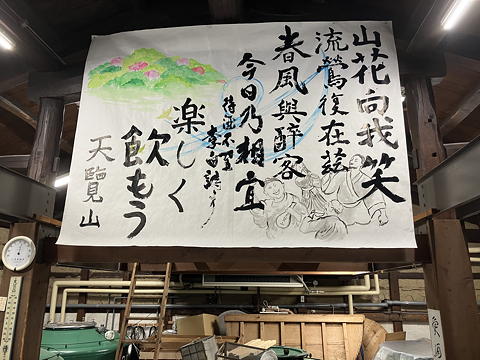 山花向我笑
流鶯復在茲
春風與醉客
今日乃相宜
待酒不至
李白詩より
楽しく
飲もう
天覽山